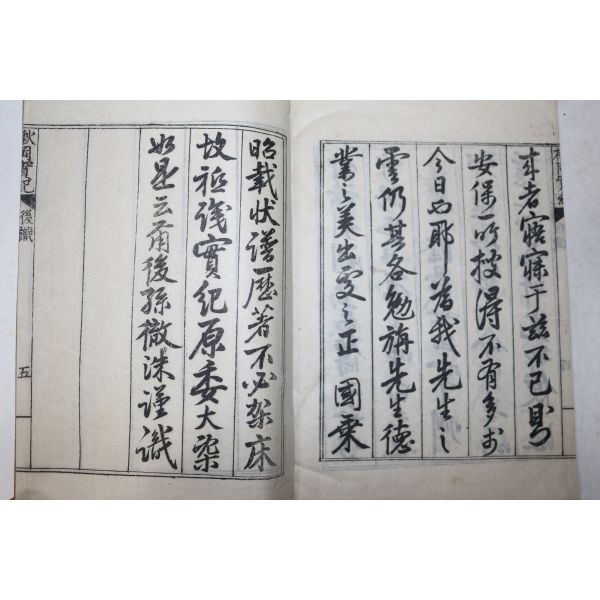 來者寤寐于玆不已則
安保一所搜得不有多於
今日也耶爲我先生之
雲仍其各勉旃先生德
業之美出處之正 國乘
昭載狀譜歷著不必架床
故秪識實紀原委大槩
如是云爾後孫徹洙謹識
後識
五